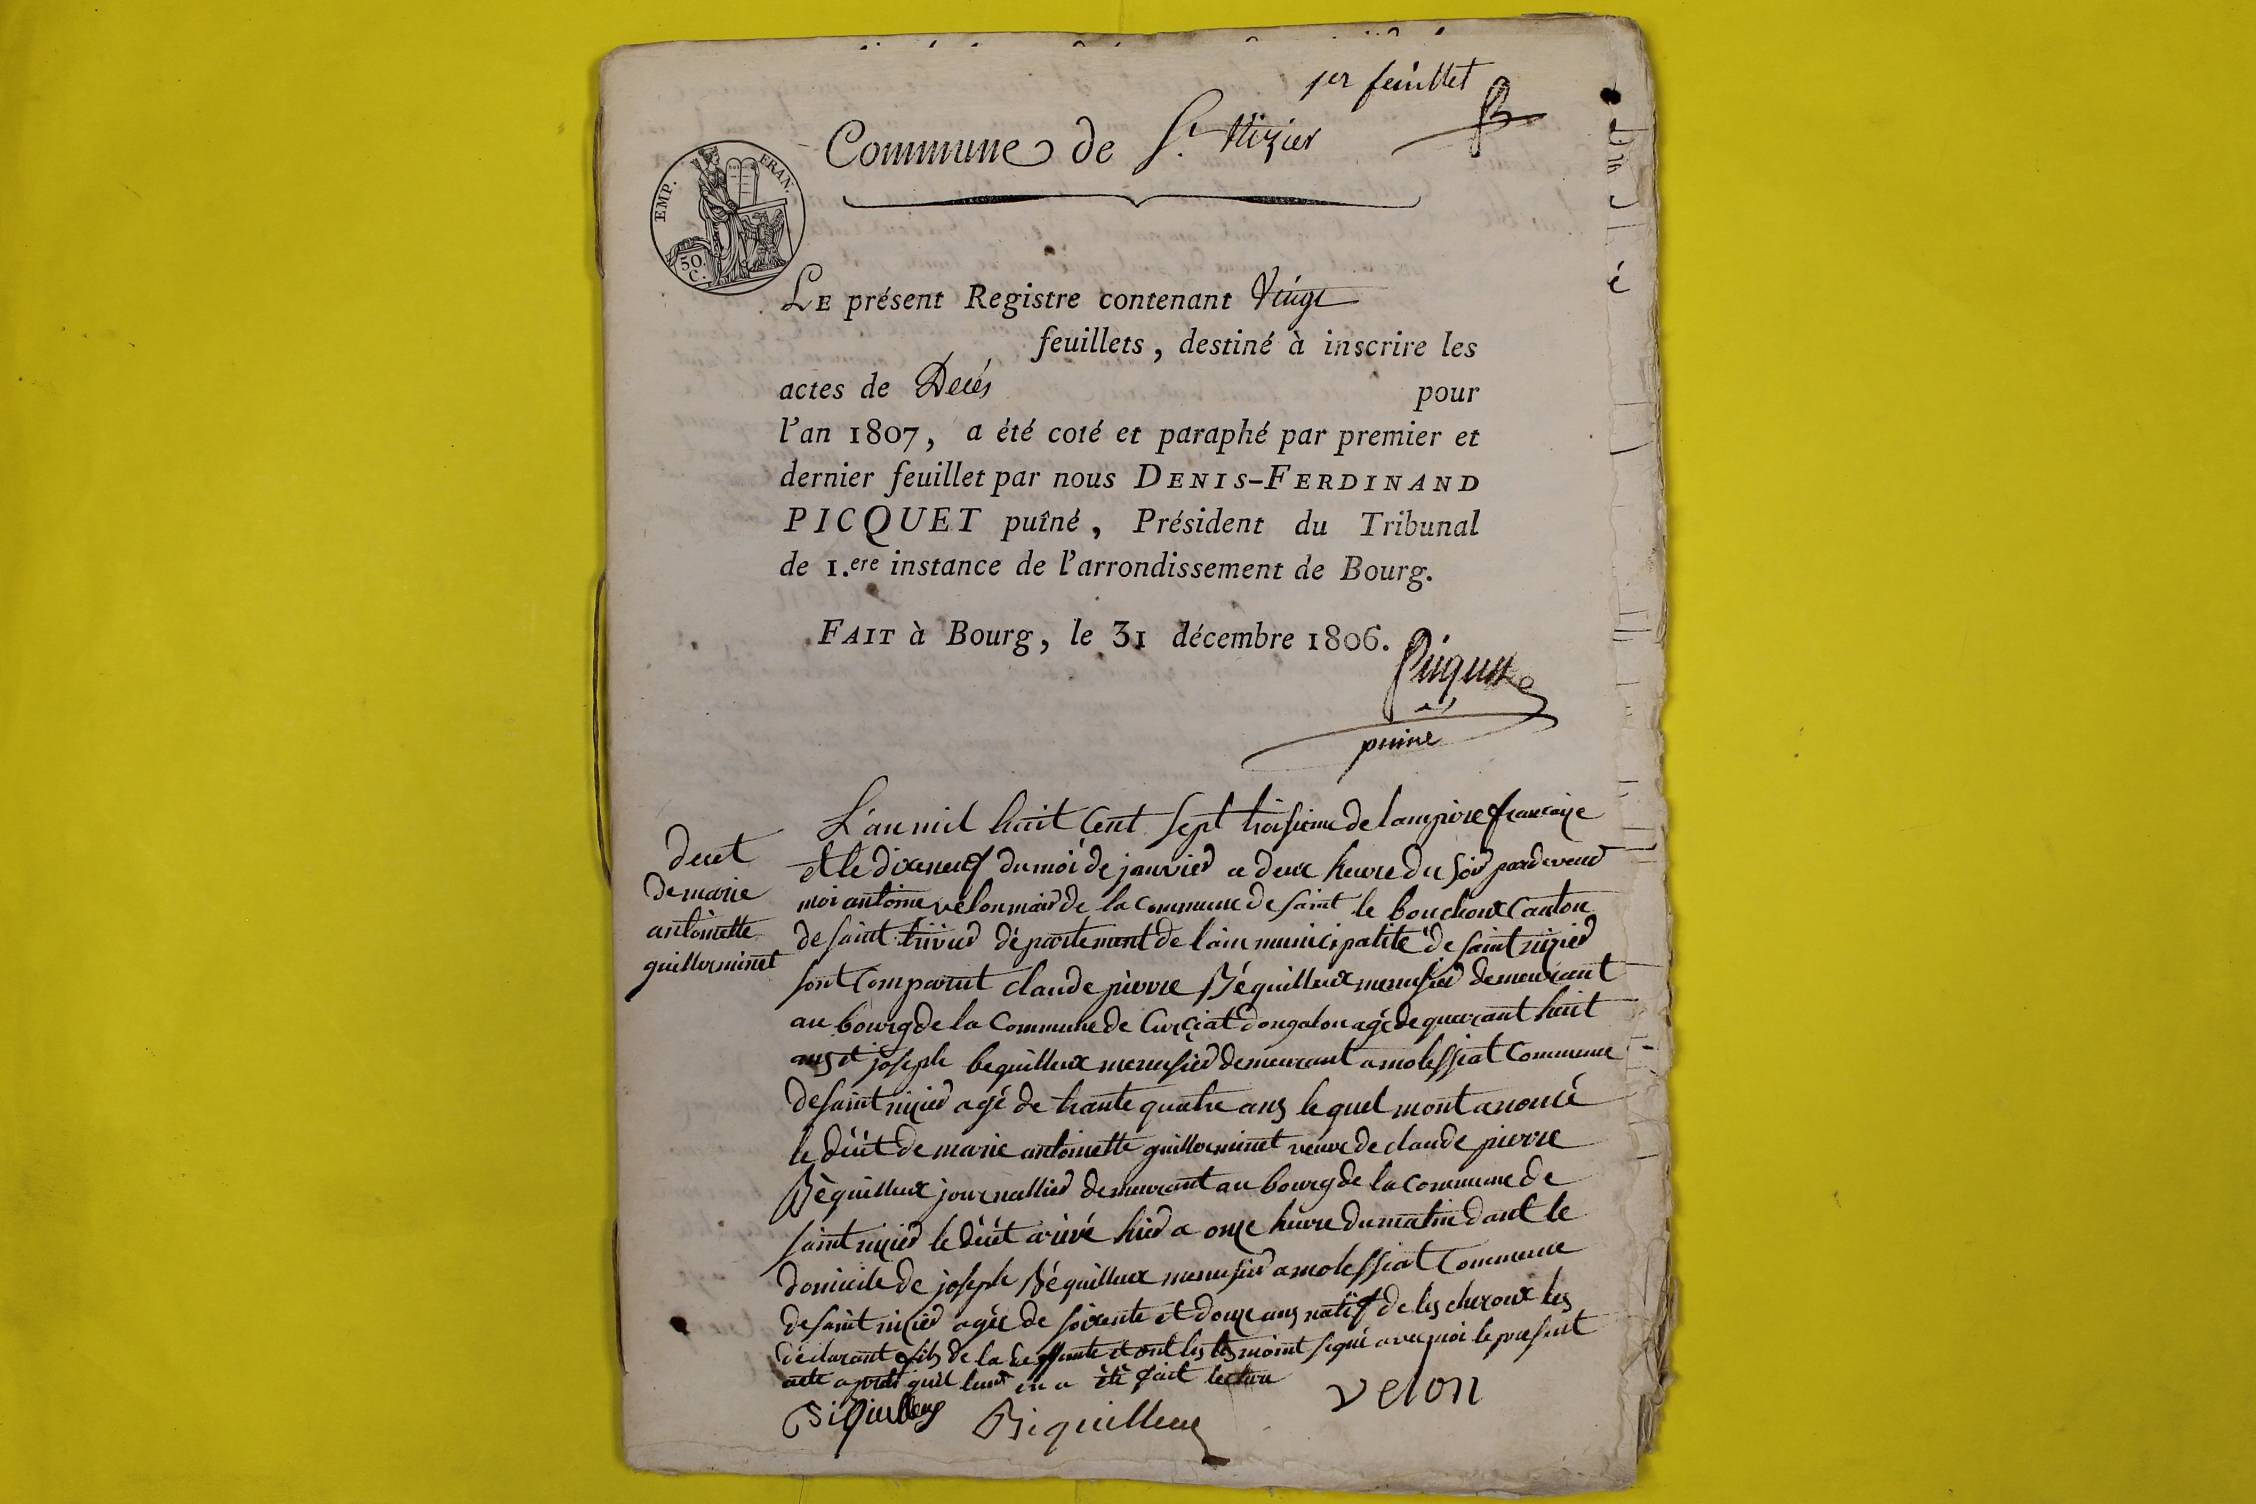 1er feuillet
Commune de St. Nizier
EMP. FRAN.
50.
C.
LE présent Registre contenant Vingt
feuillets, destiné à inscrire les
actes de Decés pour
l'an 1807, a été coté et paraphé par premier et
dernier feuillet par nous DENIS-FERDINAND
PICQUET puîné, Président du Tribunal
de 1.ere instance de l'arrondissement de Bourg.
FAIT à Bourg, le 31 décembre 1806.
Picquet
puiné
decet
de marie
antoinette
guillerminet
L'an mil huit Cent Sept troisieme de lampire francaise
et le dixeneuf du moi de janvier a deux heure du soir pardevend
moi antoine velon maire de la commune de saint le bouchoux Canton
de saint trivier département de lain municipalité de saint nizier
sont Comparut claude pierre Béquilleux menusier demeurant
au bourg de la Commune de Curciat dongalon agé de quarant huit
ans et joseph bequilleux menusier demeurant a molessiat Commune
de saint nizier agé de trante quatre ans lequel mont anoncé
le décét de marie antoinette guillerminet veuve de claude pierre
Béquilleux journallier demeurant au bourg de la Commune de
saint nizier le décét arivé hier a onze heure du matin dant le
domicile de joseph Béquilleux menusier a molessiat Commune
de saint nizier agée de soixente et douze ans natif de les cheroux les
déclarant fils de la deffunte et ont les tesmoint signé avec moi le present
acte apres quil leur en a été fait lecture
Biquilleux Biquilleux velon